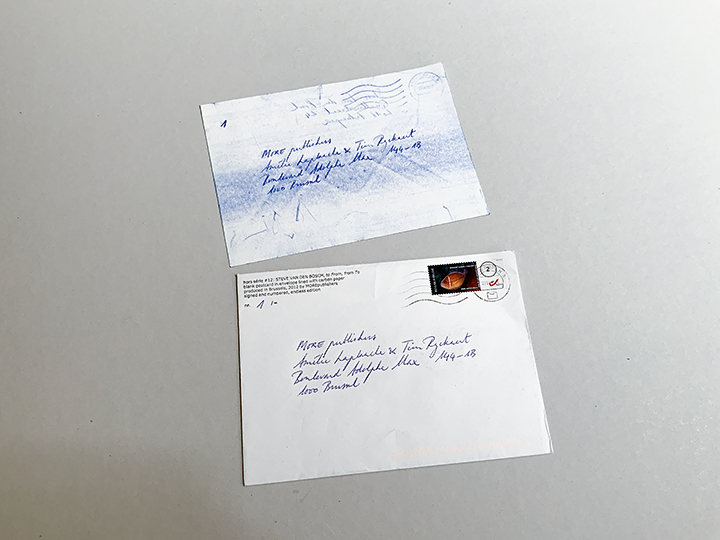 1
MORE publishers
Amélie Laplanche & Tim Ryckaert
Boulevard Adolphe Max 144-1B
1000 Brussel
hors série #12: STEVE VAN DEN BOSCH, to From, from To
blank postcard in envelope lined with carbon paper
produced in Brussels, 2012 by MOREpublishers
signed and numbered, endless edition
nr. 1 /∞
2
MORE publishers
Amélie Laplanche & Tim Ryckaert
Boulevard Adolphe Max 144-1B
1000 Brussel